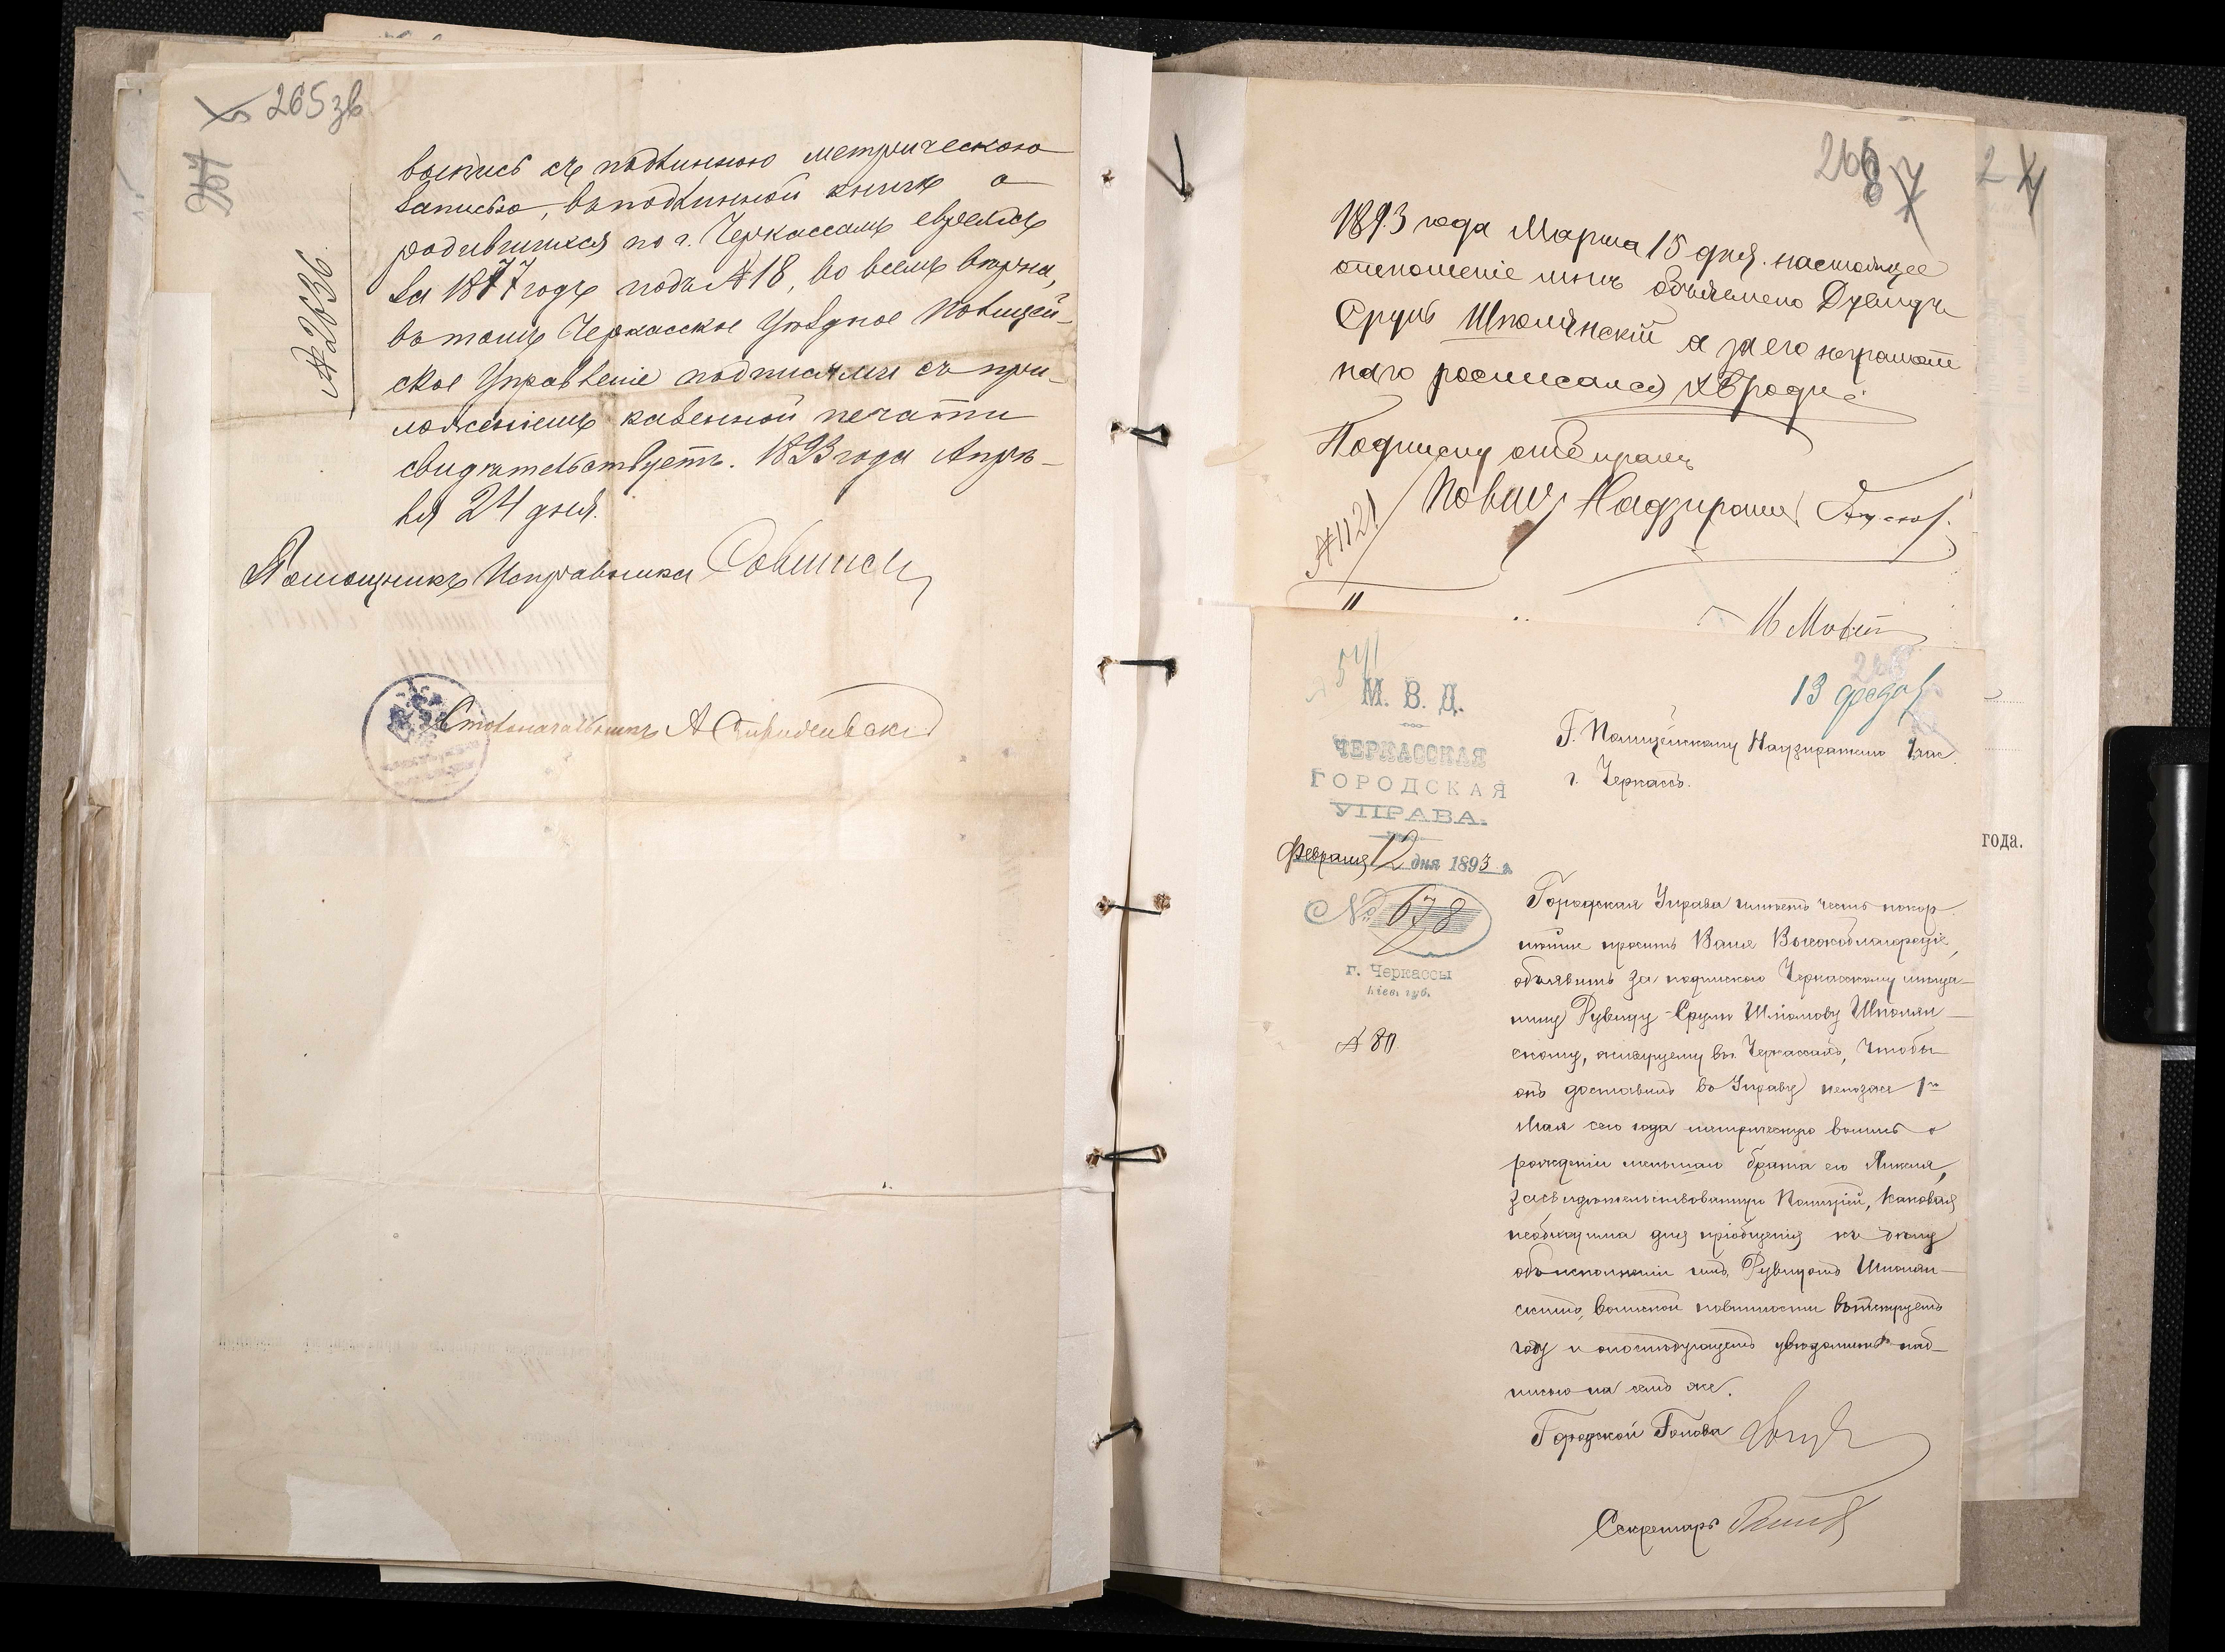 265 зв
267
№ 2036
выпись съ подлинною метрическою
записью, въ подлинной книгѣ о
родившихся по г. Черкассамъ евреяхъ
за 1877 годъ подъ № 18, во всемъ вѣрна,
въ томъ Черкасское Уѣздное Полицей-
ское Управленіе подписями съ при-
ложеніемъ казенной печати
свидѣтельствуетъ. 1893 года Апрѣ-
ля 24 дня.
Помощникъ Исправника
Столоначальникъ А
266
7
2
1893 года Марта 15 дня настоящее
отношеніе мнѣ объявлено
Сруль Шполянскій а за его неграмот
наго росписался
Подписку отбиралъ
Полиц. Надзиратель
№ 1121
541
М. В. Д.
ЧЕРКАССКАЯ
ГОРОДСКАЯ
УПРАВА.
Февраля 12 дня 1893 г.
№ 678
г. Черкассы
Кіев. губ.
№ 80
13 февр
Г. Полицейскому Надзирателю 1 час.
г. Черкассъ.
года.
Городская Управа имѣетъ честь покор
нѣйше просить Ваше Высокоблагородіе,
объявить за подпискою Черкасскому мѣща-
нину Рувиду-Срулю Шліомову Шполян-
скому, живущему въ Черкассахъ, чтобы
онъ доставилъ въ Управу непозже 1го
Мая сего года метрическую выпись о
рожденіи меньшаго брата его Янкеля,
засвидѣтельствованную Полиціей, каковая
необходима для пріобщенія къ дѣлу
объ исполненіи имъ, Рувидомъ Шполян-
скимъ, воинской повинности въ текущемъ
году и о послѣдующемъ увѣдомить над-
писью на семъ же.
Городской Голова
Секретарь